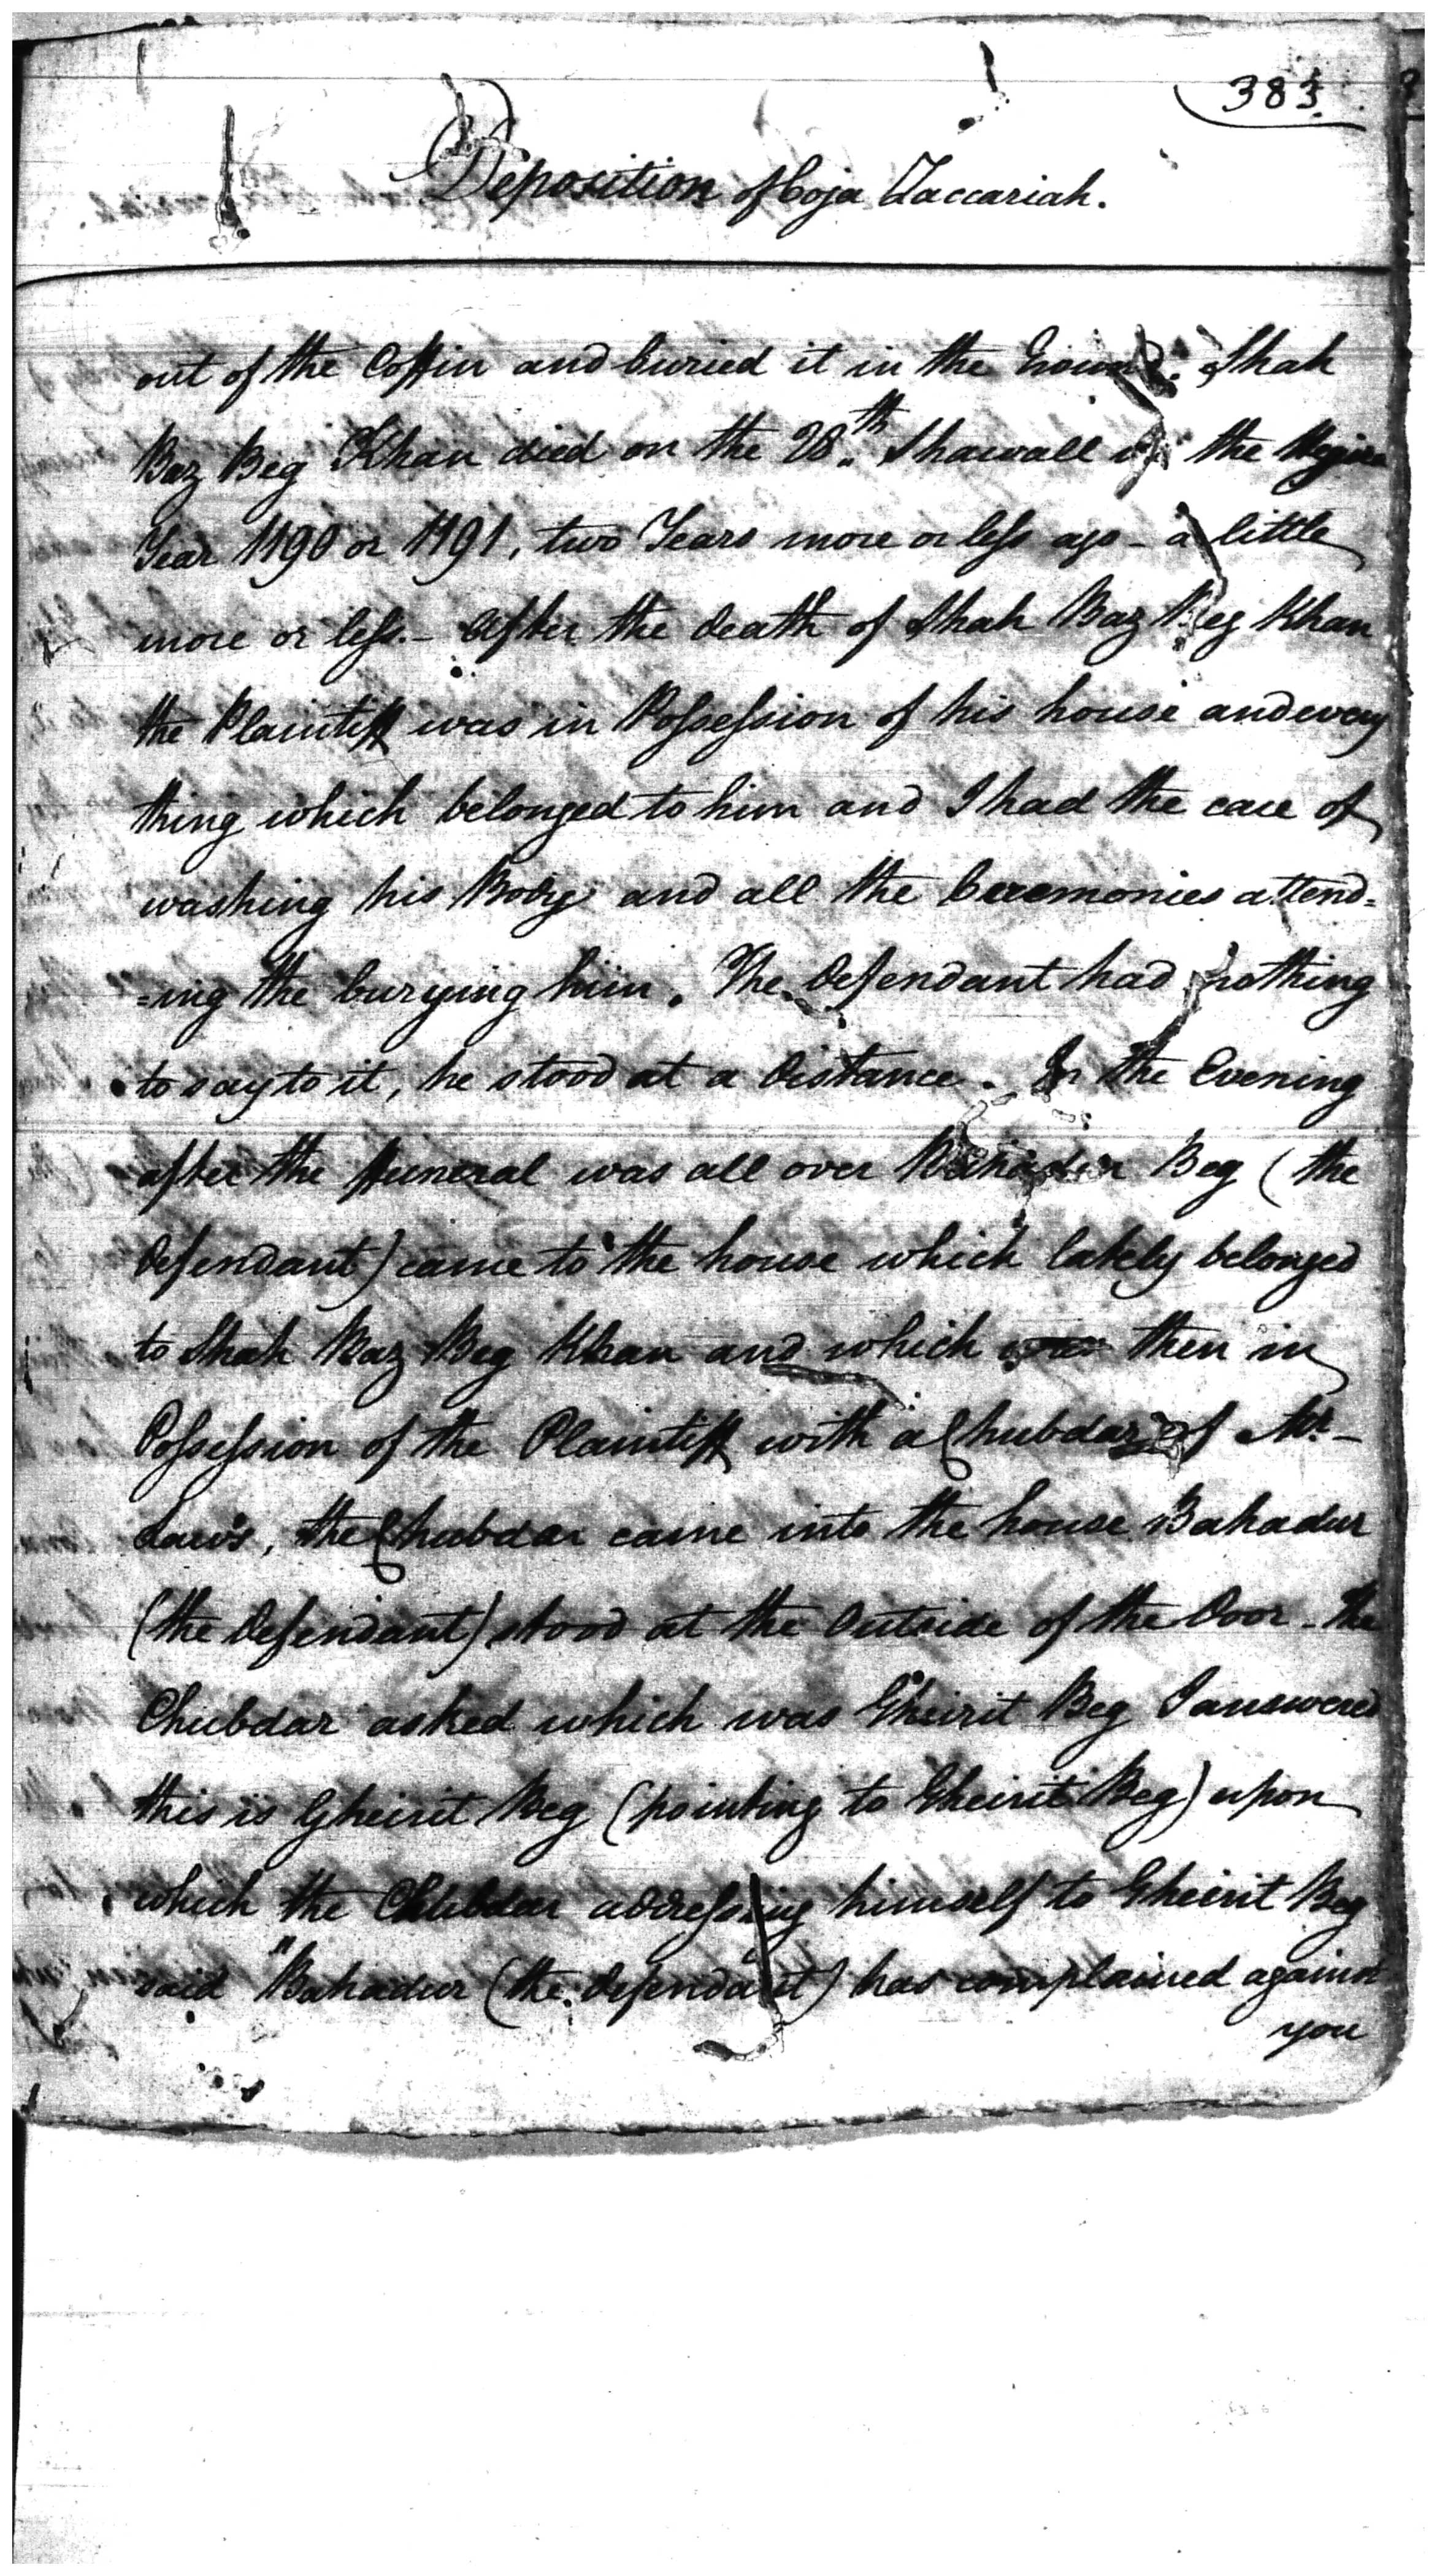 383
Deposition of Coja Zaccariah.
out of the Coffin and buried it in the Ground. Shah
Baz Beg Khan died on the 28.th Shawall of the Hegira
Year 1190 or 1191, two Years more or less ago - a little
more or less. - After the death of Shah Baz Beg Khan
the Plaintiff was in Possession of his house and every
thing which belonged to him and I had the care of
washing his Body and all the Ceremonies attend=
=ing the burying him. The Defendant had nothing
to say to it, he stood at a distance. In the Evening
after the funeral was all over Bahadur Beg (the
Defendant) came to the house which lately belonged
to Shah Baz Beg Khan and which was then in
Possession of the Plaintiff with a Chubdar of Mr.
Law's, the Chubdar came into the house Bahadur
(the Defendant) stood at the Outside of the Door - The
Chubdar asked which was Gheirit Beg I answered
this is Gheirit Beg (pointing to Gheirit Beg) upon
which the Chubdar addressing himself to Gheirit Beg
said "Bahadur (the defendant) has complained against
you